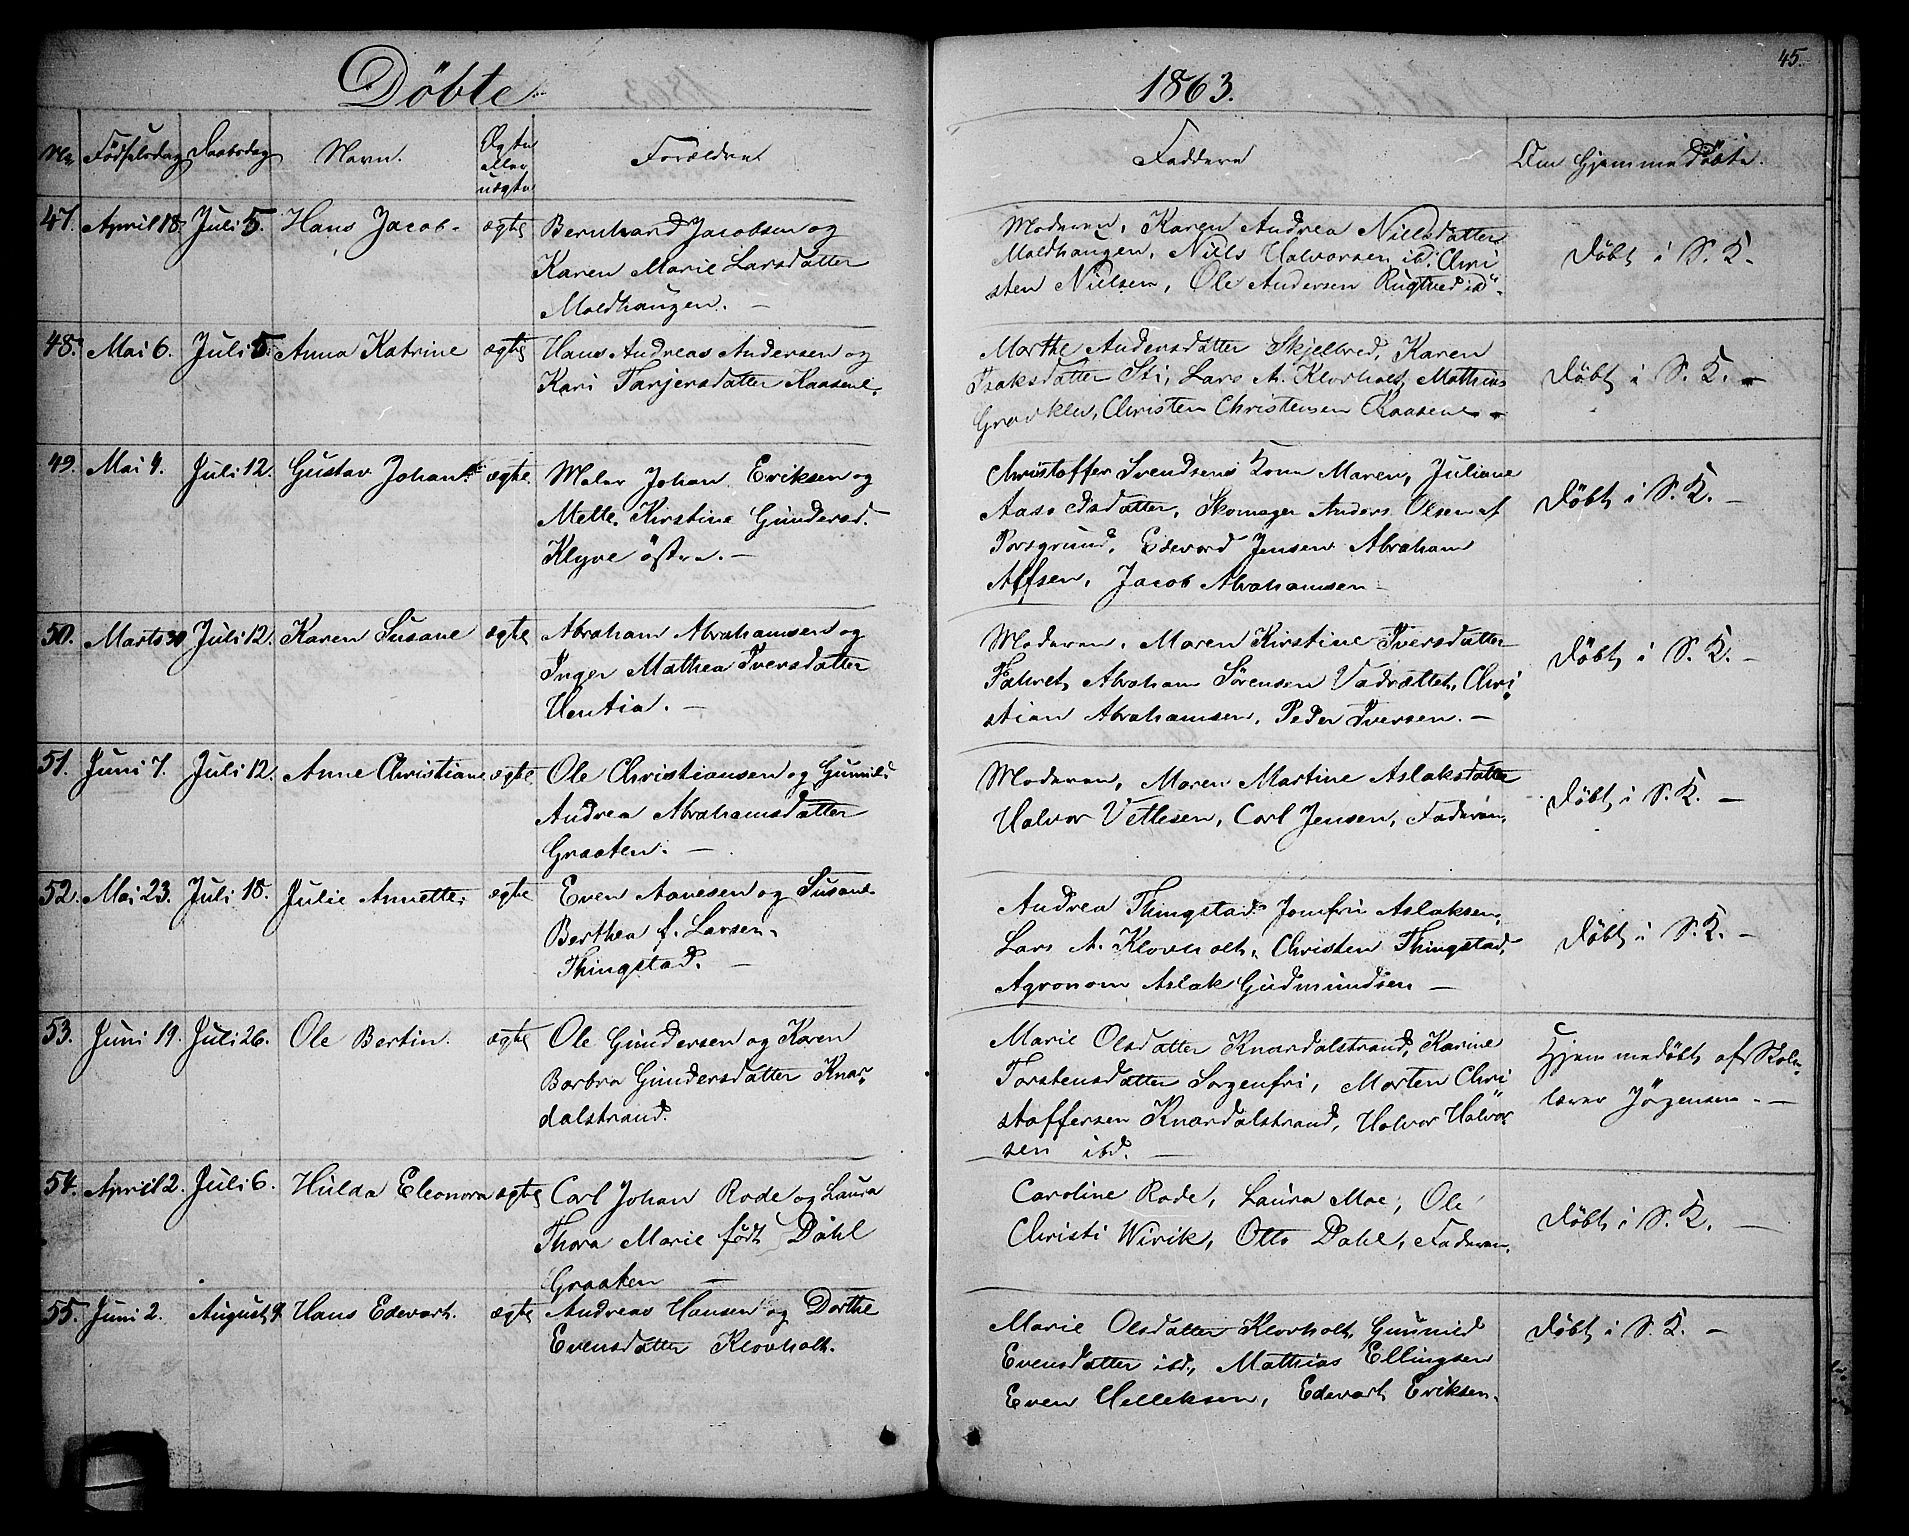 Döbte
1863.
45.
No Födselsdag Daabsdag Navn. Ægte eller uægte Forældre Faddere Om Hjemmedöbt.
47. April 18 Juli 5. Hans Jacob. ægte
Bernhard Jacobsen og
Karen Marie Larsdatter
Moldhaugen. —
Moderen, Karen Andrea Nilsdatter
Moldhaugen, Niels Halvorsen ibd, Chri
sten Nielsen, Ole Andersen Rugtved ibd
Döbt i S. K. -
48. Mai 6. Juli 5. Anna Katrine ægte
Hans Andreas Andersen og
Kari Tarjersdatter Kaasene.
Marthe Andersdatter Skjelbred, Karen
Isaksdatter Sti, Lars A. Klovholt, Mathias
Gravklev, Christen Christensen Kaasene -
Döbt i S. K. -
49. Mai 4. Juli 12. Gustav Johan ægte
Maler Johan Eriksen og
Mette Kirstine Gundersd.
Klyve östre. —
Christoffer Svendsens Kone Maren, Juliane
Aasoldsdatter, Skomager Anders Olsen af
Porsgrund, Edevard Jensen Abraham
Affsen, Jacob Abrahamsen -
Döbt i S. K. —
50. Marts 30 Juli 12. Karen Susane ægte
Abraham Abrahamsen og
Inger Mathea Iversdatter
Uentia. —
Moderen, Maren Kirstine Iversdatter
Fahret, Abraham Sörensen Vadrættet, Chri
stian Abrahamsen, Peder Iversen. —
Döbt i S. K. —
51. Juni 7. Juli 12. Anne Christiane ægte
Ole Christiansen og Gunild
Andrea Abrahamsdatter
Graaten. —
Moderen, Maren Martine Aslaksdatter
Halvor Vetlesen, Carl Jensen, Faderen.
Döbt i S. K. —
52. Mai 23. Juli 18. Julie Annette. ægte
Even Aanesen og Susane
Berthea f. Larsen
Thingstad. —
Andrea Thingstad Jomfru Aslaksen,
Lars A. Klovholt, Christen Thingstad,
Agronom Aslak Gudmundsen —
Döbt i S. K. —
53. Juni 19. Juli 26. Ole Bertin. ægte
Ole Gundersen og Karen
Barbra Gundersdatter Knar
dalstrand.
Marie Olsdatter Knardalstrand, Karine
Torstensdatter Sorgenfri, Morten Chri
stoffersen Knardalstrand, Halvor Halvor
sen ibd. —
Hjemmedöbt af Skole
lærer Jörgensen. —
54. April 2. Juli 6. Hulda Eleonora ægte
Carl Johan Rode og Laura
Thora Marie födt Dahl
Graaten —
Caroline Rode, Laura Moe, Ole
Christi Wirik, Otto Dahl, Faderen.
Döbt i S. K. —
55. Juni 2. August 9. Hans Edevart. ægte
Andreas Hansen og Dorthe
Evensdatter Klovholt.
Marie Olsdatter Klovholt, Gunnild
Evensdatter ibd, Mathias Ellingsen
Even Helleksen, Edevart Eriksen.
Döbt i S. K. —